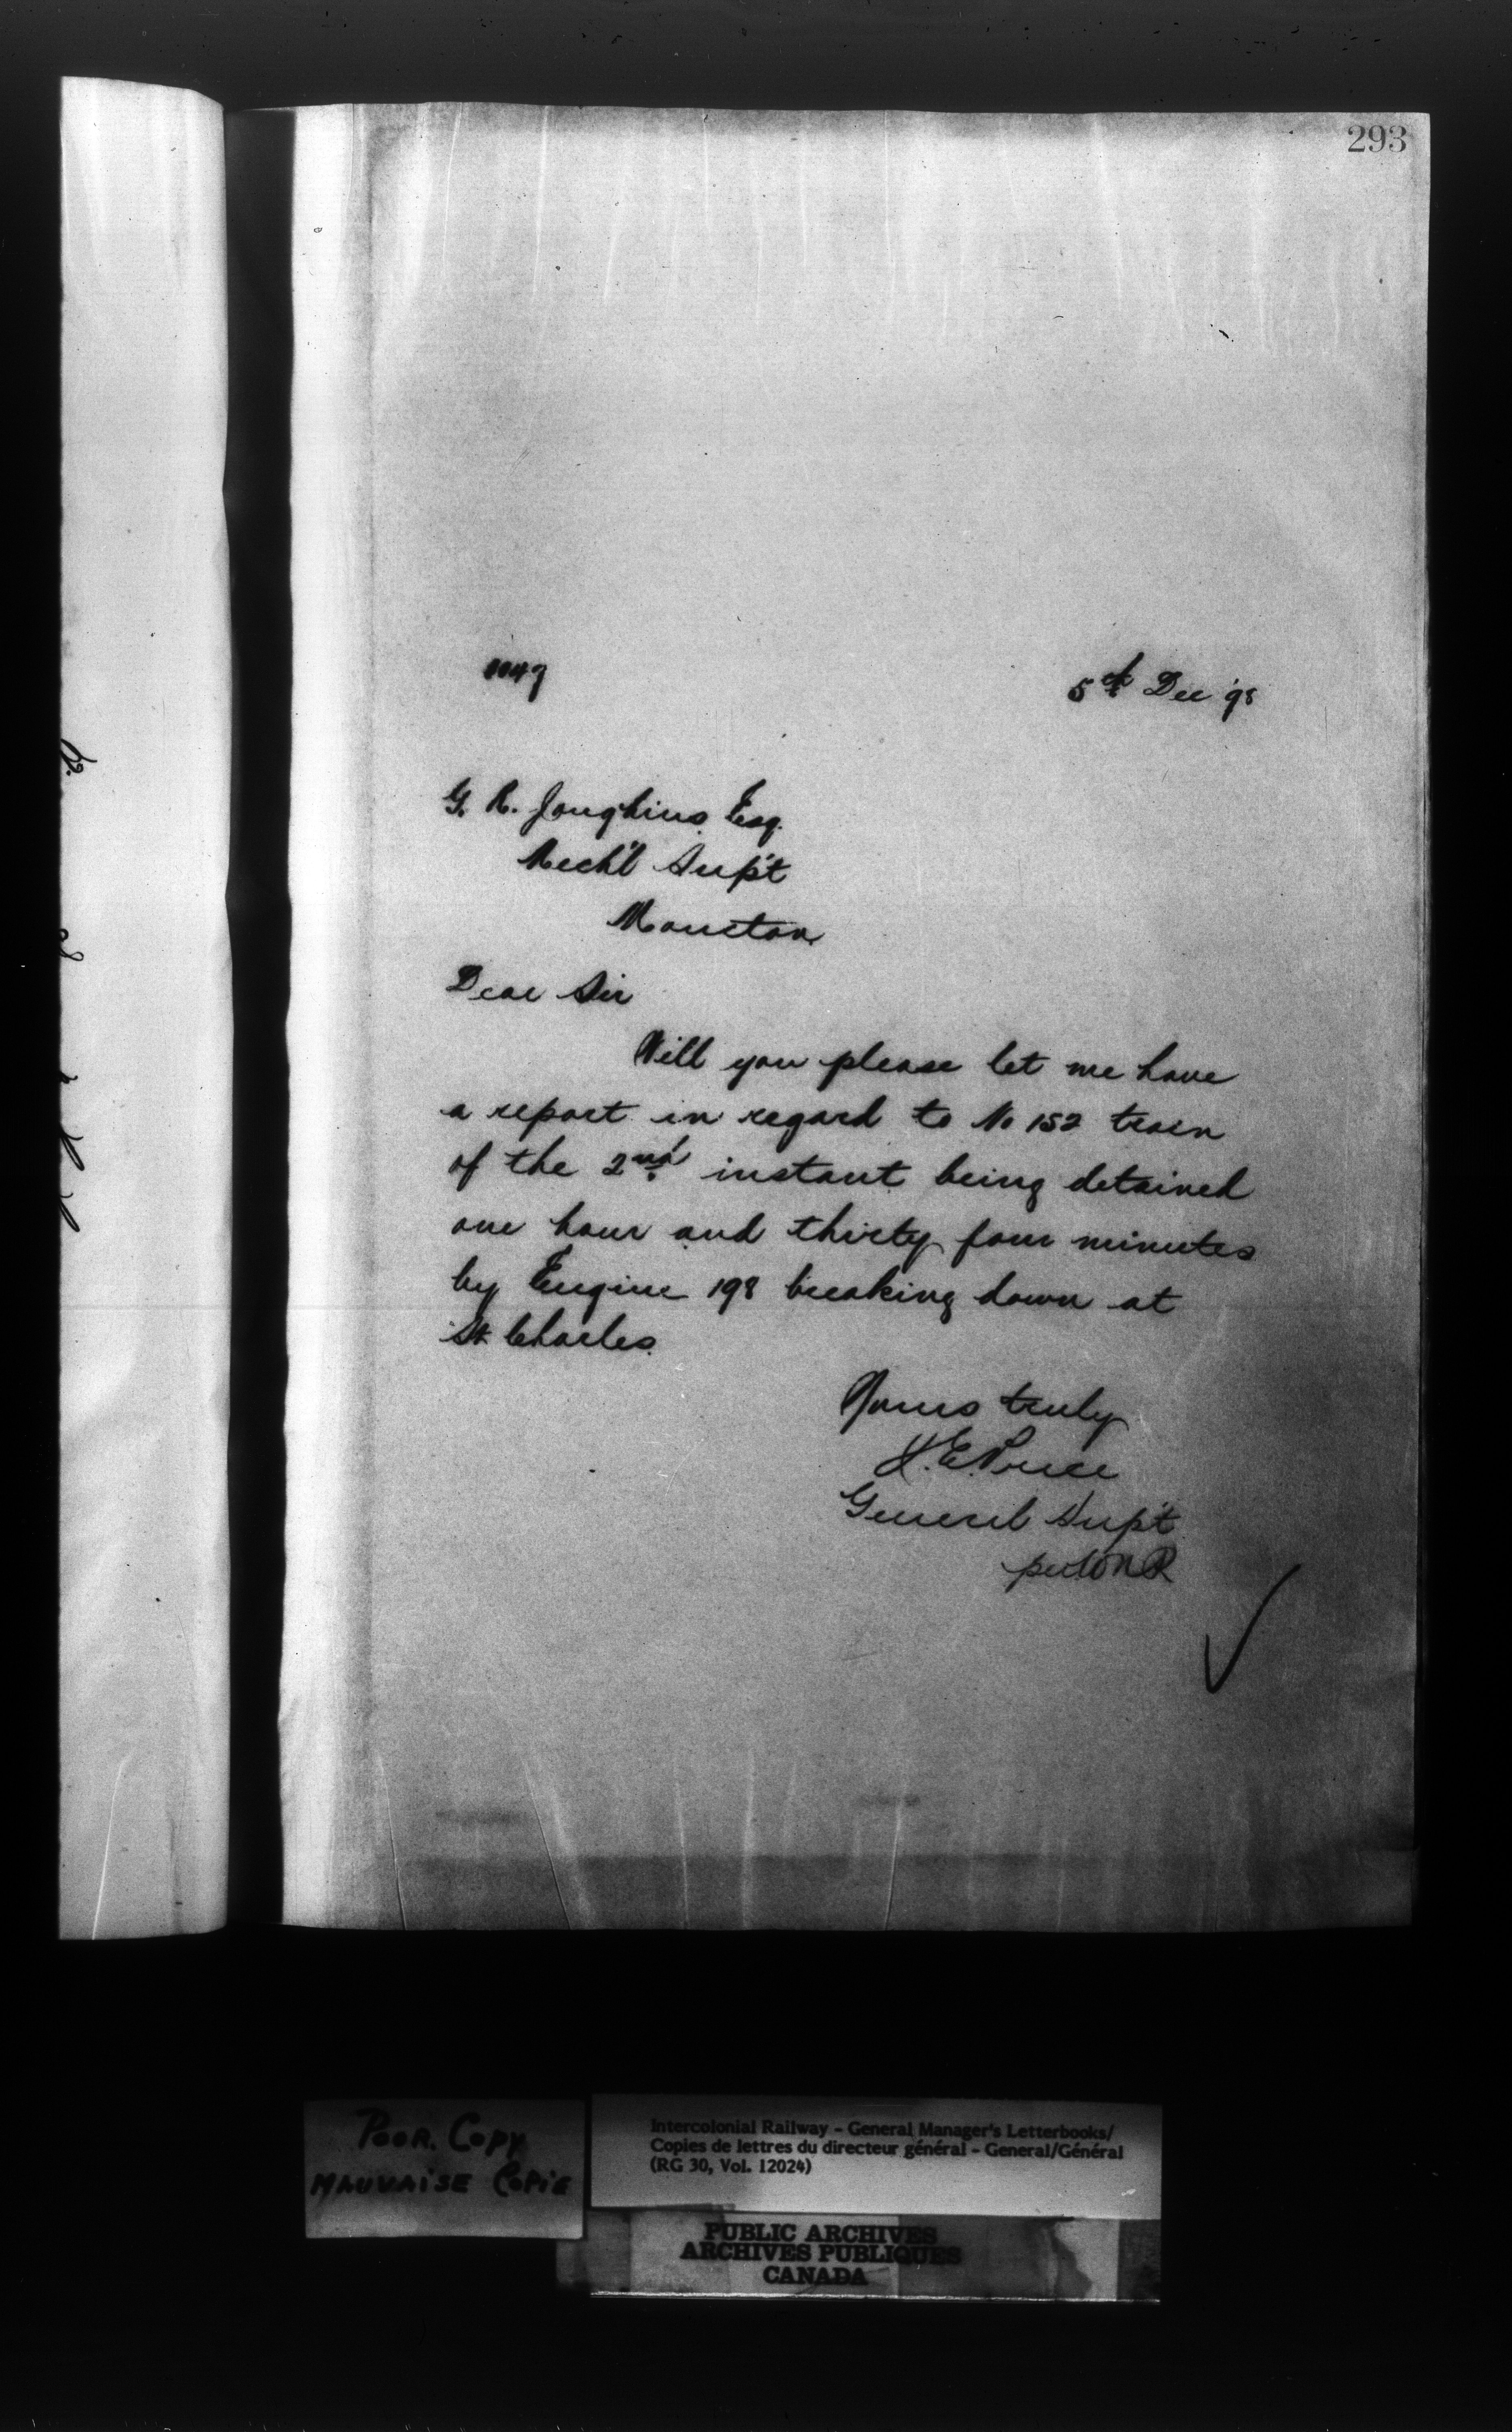 293
5th Dec '98
G. R. Joughins Esq.
Mech'l Sup't
Moncton
Dear Sir
Will you please let me have
a report in regard to No 152 train
of the 2nd instant being detained
one hour and thirty four minutes
by Engine 198 breaking down at
St Charles.
Yours truly
General Sup't
Poor Copy
Mauvaise Copie
Intercolonial Railway - General Manager's Letterbooks/
Copies de lettres du directeur général - General/Général
(RG 30, Vol. 12024)
PUBLIC ARCHIVES
ARCHIVES PUBLIQUES
CANADA